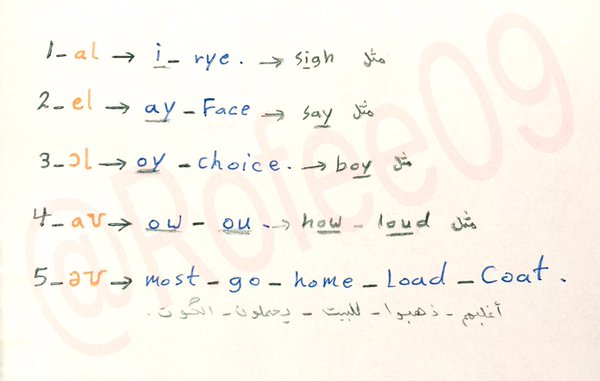 1_ aɪ → i_ rye. → sigh مثل
2_ eɪ → ay _ Face → say مثل
3_ ɔɪ → oy _ choice. → boy مثل
4_ aʊ → ow _ ou → how _ loud مثل
5_ əʊ → most _ go _ home _ Load _ Coat.
أغلبهم _ ذهبوا _ للبيت _ يحملون _ الكوت.
@Rofee09